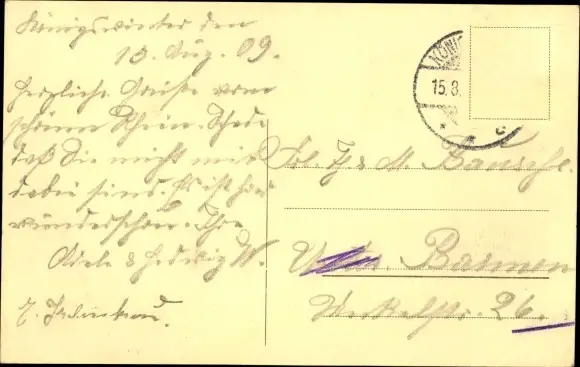 Königswinter den
15. Aug. 09.
Herzliche Grüße vom
schönen Rhein. Schade
daß Sie nicht mit
dabei sind. Es ist hier
wunderschön. Ihre
Adele & Hedwig W.
KÖNI
15.8.
c
Frl. & M.
Barmen
26.